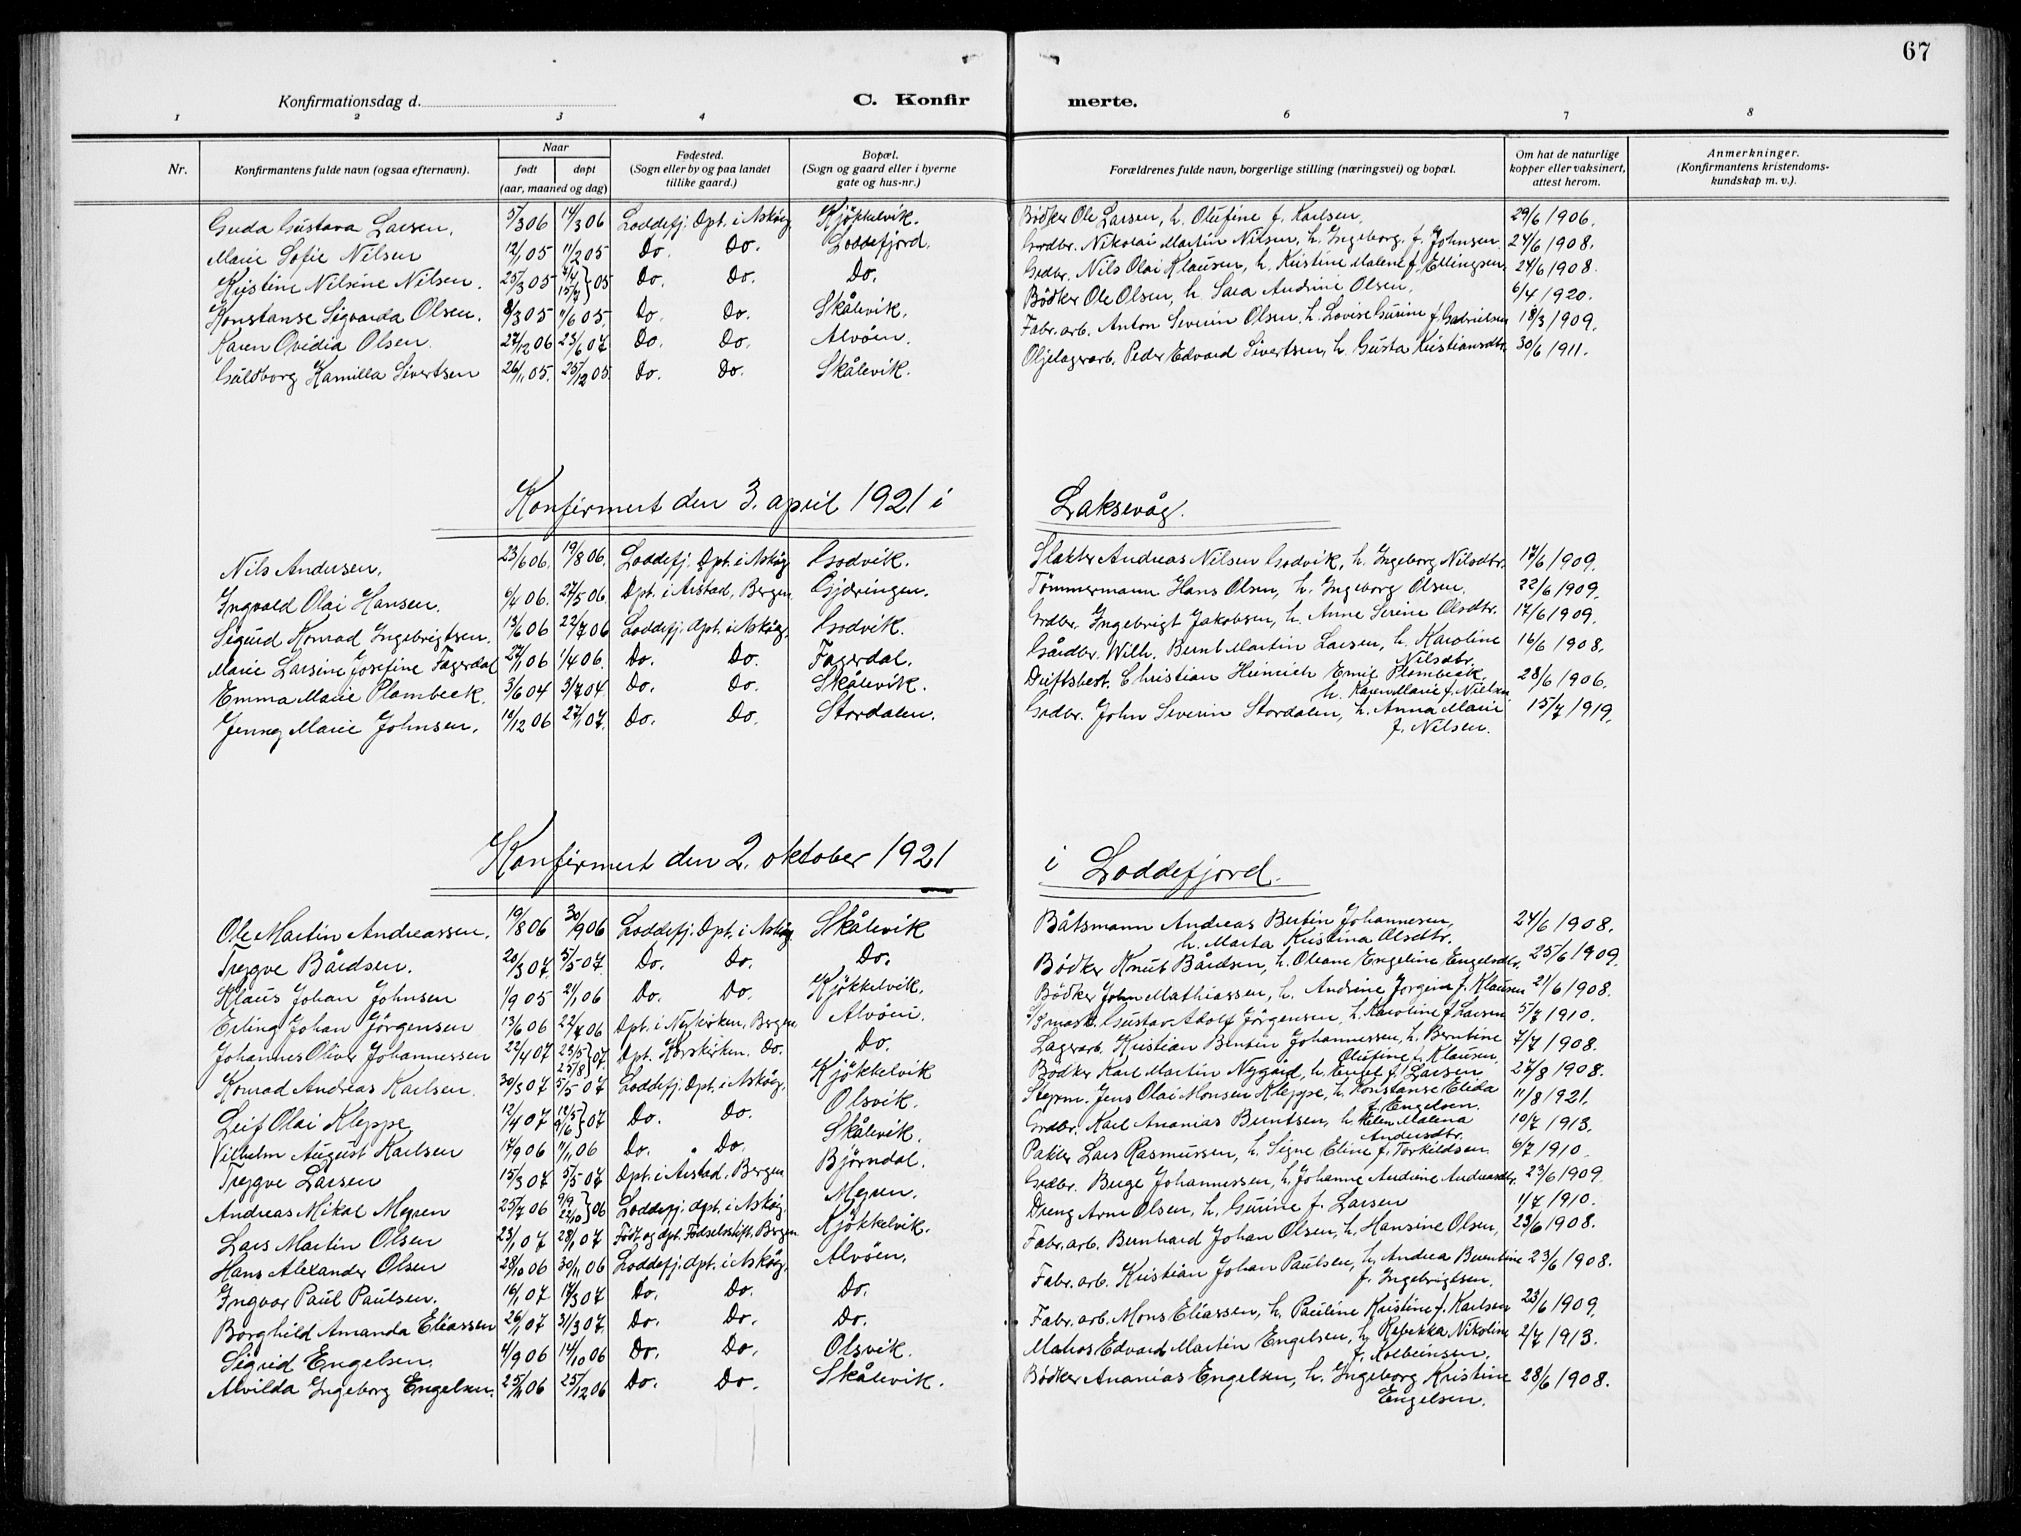 67
Konfirmationsdag d. C. Konfir merte.
1 2 3 4 6 7 8
Nr. Konfirmantens fulde navn (ogsaa efternavn). Naar født døpt (aar, maaned og dag) Fødested. (Sogn eller by og paa landet tillike gaard.) Bopæl. (Sogn og gaard eller i byerne gate og hus-nr.) Forældrenes fulde navn, borgerlige stilling (næringsvei) og bopæl. Om hat de naturlige kopper eller vaksinert, attest herom. Anmerkninger. (Konfirmantens kristendoms-kundskap m. v.).
Guda Gustava Larsen. 5/3 06 14/3 06 Loddefj. Dpt. i Askøy Kjøkkelvik. Bødker Ole Larsen, h. Olufine f. Karlsen. 29/6 1906.
Marie Sofie Nilsen 12/1 05 11/2 05 Do. Do. Loddefjord. Grdbr. Nikolai Martin Nilsen, h. Ingeborg f. Johnsen 24/6 1908.
Kristine Nilsine Nilsen. 25/3 05 15/7 } 05 Do. Do. Do. Grdbr. Nils Olai Klausen, h. Kristine Malene f. Ellingsen. 24/6 1908.
Konstanse Sigvarda Olsen. 8/3 05 11/6 05. Do. Do. Skålevik. Bødker Ole Olsen, h. Sara Andrine Olsen. 6/4 1920.
Karen Ovidia Olsen. 27/12 06 23/6 07 Do. Do. Alvøen. Fabr. arb. Anton Severin Olsen. h. Lovise Gurine f. Gabrielsen 18/3 1909.
Guldborg Kamilla Sivertsen 26/11 05. 25/12 05. Do. Do. Skålevik. Oljelagerarb. Peder Edvard Sivertsen, h. Gusta Kristiansdtr. 30/6 1911.
Konfirmert den 3. april 1921 i Laksevåg.
Nils Andersen. 23/6 06. 19/8 06. Loddefj. Dpt. i Askøy Godvik. Slakter Andreas Nilsen Godvik, h. Ingeborg Nilsdtr. 17/6 1909.
Ingvald Olai Hansen. 6/4 06. 27/5 06. Dpt. i Årstad, Bergen. Gjæringen. Tømmermann Hans Olsen, h. Ingeborg Olsen. 22/6 1909.
Sigurd Konrad Ingebrigtsen. 13/6 06 22/7 06 Loddefj. dpt. i Askøy. Godvik. Grdbr. Ingebrigt Jakobsen, h. Anne Serine Olsdtr. 17/6 1909.
Marie Larsine Josefine Fagerdal 27/1 06 1/4 06. Do. Do. Fagerdal. Gårdbr. Wilh. Bernt Martin Larsen, h. Karoline Nilsdtr. 16/6 1908.
Emma Marie Plambeck. 3/6 04 3/7 04. Do. Do. Skålevik. Driftsbest. Christian Heinrich Emil Plambeck, h. Karen Marie f. Nielsen 28/6 1906.
Jenny Marie Johnsen. 10/12 06 27/1 07. Do. Do. Stordalen. Grdbr. John Severin Stordalen, h. Anna Marie f. Nilsen. 15/7 1919.
Konfirmert den 2. oktober 1921 i Loddefjord.
Ole Martin Andreassen. 19/8 06 30/9 06 Loddefj. Dpt. i Askøy Skålevik Båtsmann Andreas Bertin Johannesen, h. Marta Kristina Olsdtr. 24/6 1908.
Trygve Bårdsen. 20/3 07. 5/5 07. Do. Do. Do. Bødker Knut Bårdsen, h. Oleane Engeline Engelsdtr. 25/6 1909.
Klaus Johan Johnsen 1/9 05 21/1 06 Do. Do. Kjøkkelvik. Bødker John Mathiassen, h. Andrine Jorgine f. Klausen 21/6 1908.
Erling Johan Jörgensen 13/6 06 22/7 06 Dpt. i Nykirken, Bergen Alvøen. Gustav Adolf Jörgensen, h. Karoline f. Larsen 5/7 1910.
Johannes Oliver Johannessen 22/4 07 23/5 25/8 } 07. Dpt. Korskirken. Do. Do. Lagerarb. Kristian Bertin Johannessen, h. Berntine Olufine f. Klausen. 7/7 1908.
Konrad Andreas Karlsen. 30/3 07 5/5 07 Loddefj. Dpt. i Askøy. Kjøkkelvik Bødker Karl Martin Nygård, h. Engel f. Larsen 27/8 1908.
Leif Olai Kleppe 12/4 07 12/5 9/6 } 07 Do. Do. Olsvik. Styrm. Jens Olai Monsen Kleppe, h. Konstanse Elida f. Engelsen. 11/8 1921.
Vilhelm August Karlsen 17/9 06 11/11 06 Do. Do Skålevik. Grdbr. Karl Ananias Berntsen, h. Helen Malena Andersdtr. 10/7 1913.
Trygve Larsen 15/3 07 5/5 07 Dpt. i Årstad, Bergen Bjørndal. Pakker Lars Rasmussen, h. Signe Eline f. Torkildsen. 6/7 1910.
Andreas Mikal Myren 25/7 06 9/9 22/10 } 06 Loddefj. dpt. i Askøy. Myren. Grdbr. Berge Johannessen, h. Johanne Andrine Andreasdtr. 23/6 1909.
Lars Martin Olsen 23/1 07 28/1 07 Født og dpt. Fødselsstift. Bergen Kjøkkelvik. Dreng Arne Olsen, h. Gurine f. Larsen 1/7 1910.
Hans Alexander Olsen 28/10 06 30/11 06 Loddefj. dpt. i Askøy. Alvøen. Fabr. arb. Bernhard Johan Olsen, h. Hansine Olsen, 23/6 1908.
Ingvar Paul Paulsen. 16/1 07 17/3 07 Do. Do. Do. Fabr. arb. Kristian Johan Paulsen, h. Andrea Berntine f. Ingebrigtsen. 23/6 1908.
Borghild Amanda Eliassen 26/1 07 31/3 07. Do. Do. Do. Fabr. arb. Mons Eliassen, h. Pauline Kristine f. Karlsen 23/6 1909.
Sigrid Engelsen. 4/9 06 14/10 06 Do. Do. Olsvik. Matros Edvard Martin Engelsen, h. Rebekka Nikoline f. Kolbeinsen. 2/7 1913.
Alvilda Ingeborg Engelsen. 25/11 06 25/12 06 Do. Do. Skålevik. Bødker Ananias Engelsen, h. Ingeborg Kristine Engelsen. 28/6 1908.